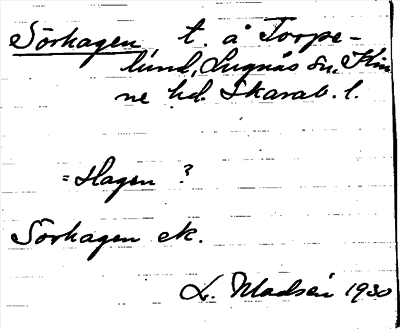 Sörhagen t. å Torpe-
lund, Lugnås sn, Kin
ne hd. Skarab. l.
= Hagen ?
Sörhagen ek.
L. Madsén 1930